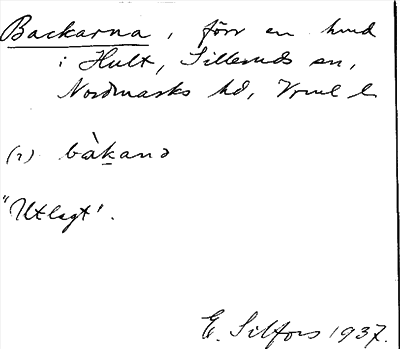 Backarna, förr en hmd
i Hult, Silleruds sn,
Nordmarks hd, Vrml l
(1) bàkanǝ
"Utlagt".
E. Silfors 1937.